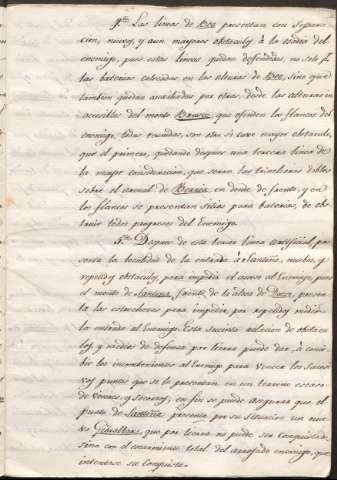 4º Las lineas de Boo presentan con separa-
cion, nuevos, y aun mayores obstaculos à la osadia del
enemigo, pues estas lineas quedan defendidas, no solo pr
las baterias colocadas en las alturas de Boo, sino que
tambien quedan auxiliadas por otras, desde las alturas in-
accesibles del monte Brusco que ofenden los flancos del
enemigo, todas reunidas, son otro si cave mayor obstaculo,
que el primero, quedando despues una tercera linea de
la mayor consideracion, que seran las trincheras dobles
sobre el arenal de Berria en donde de frente, y en
los flancos se presentan sitios para baterias, de obs-
truir todo progreso del Enemigo.
5º Despues de esta tercera linea artificial, pre-
senta la localidad de la entrada à Santoña, nuebos, y
repetidos obstaculos, para impedir el acceso al Enemigo, pues
el monte de Santoña, frente de la altura de Dueso, presen-
ta las estrecheces para impedir, por repetidos medios
la entrada al Enemigo. Esta sucinta relacion de obstacu-
los, y medios de defensa por tierra puede dar, à conce-
bir los inconvenientes al Enemigo para vencer los sucesi-
vos puntos que se le presentan en un terreno escaso
de viveres, y socorros, en fin se puede asegurar que el
punto de Santoña presenta por su situacion un nue-
vo Gibraltar, que por tierra no puede ser conquistado,
sino con el escarmiento total del arrojado enemigo, que
intentase su conquista.